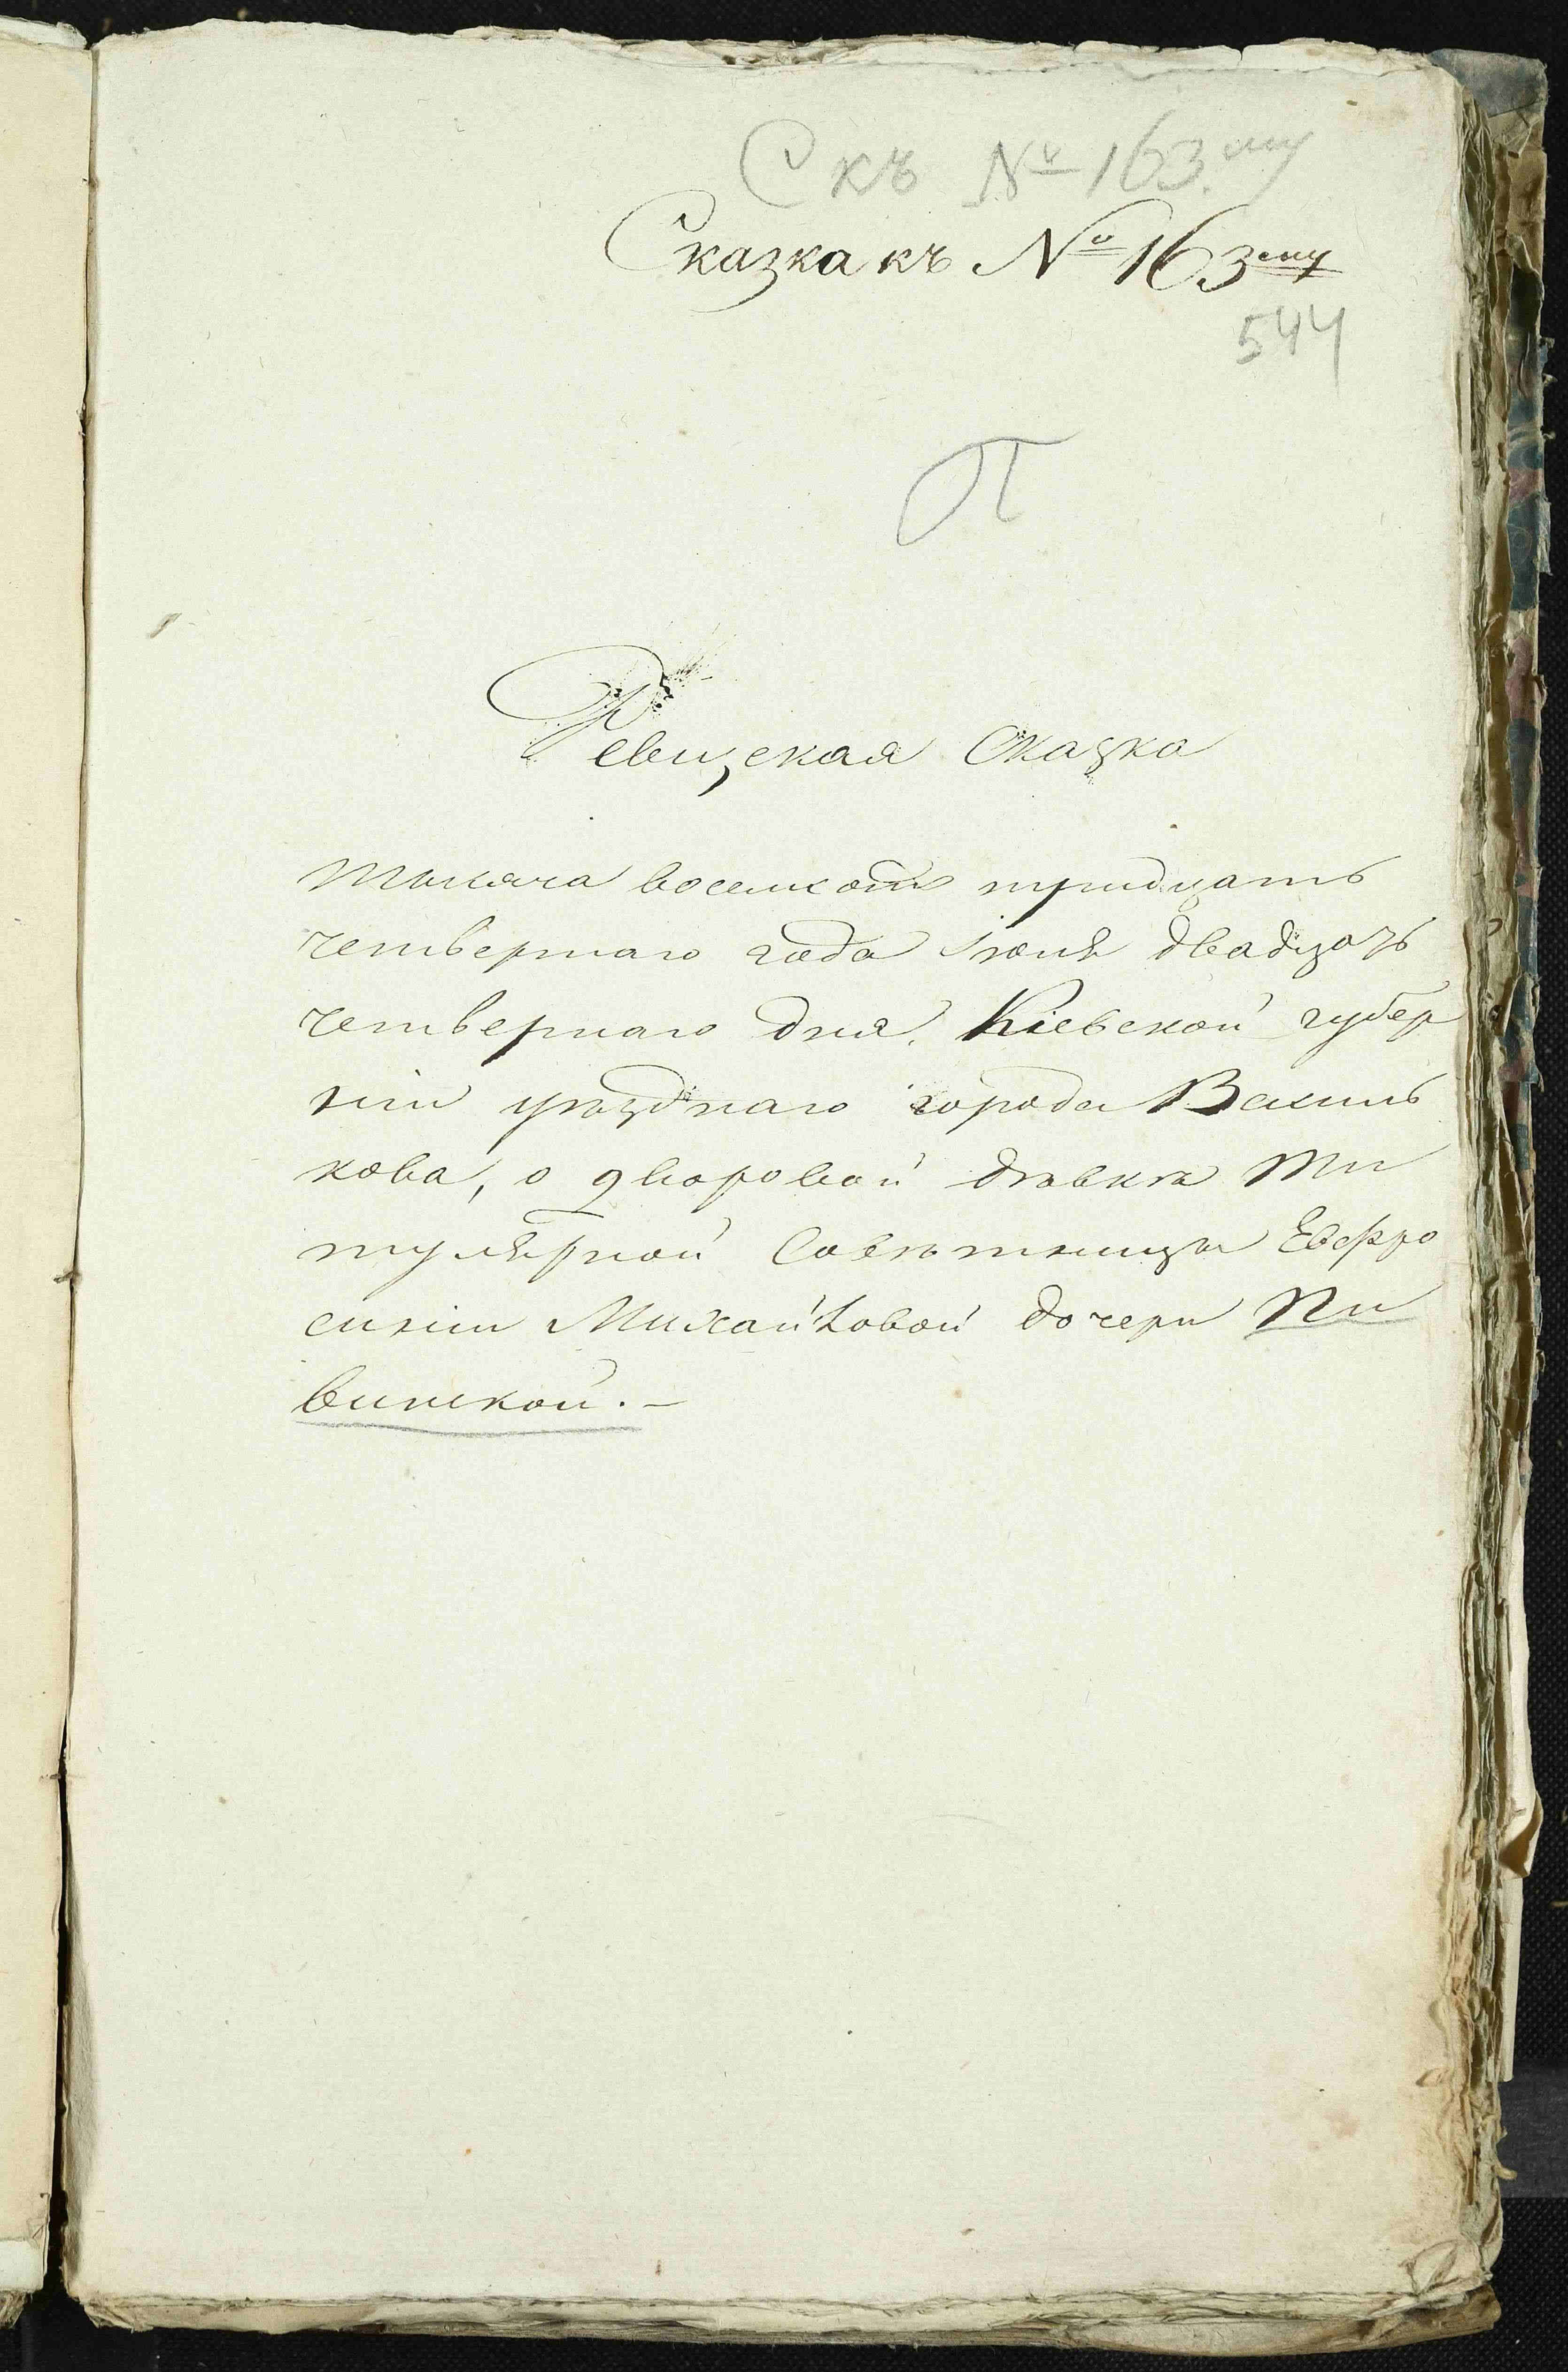 С къ № 163.му
Сказка къ № 163ему
544
П
Ревизская Сказка
Тысяча восемсотъ тридцать
четвертаго года Iюня двадцать
четвертаго дня. Кiевской губер
нiи уѣзднаго города Василь
кова, о дворовой дѣвкѣ Ти
тулярной Совѣтницы Евфро
синiи Михайловой дочери Пи
винской. –